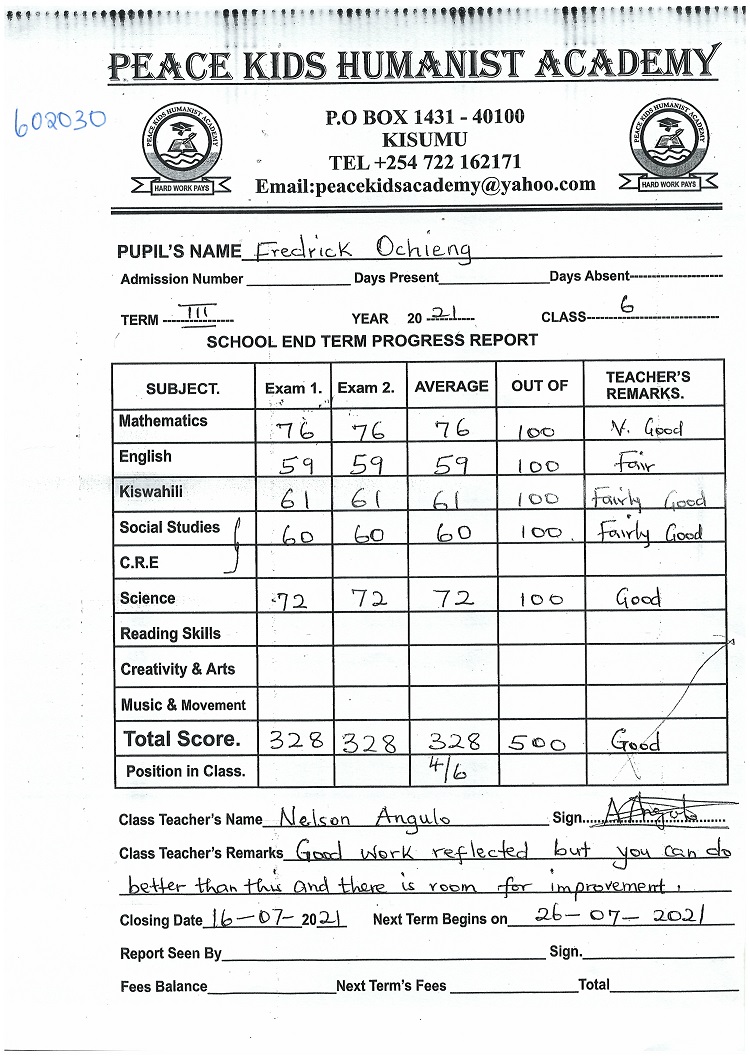 PEACE KIDS HUMANIST ACADEMY
602030
PEACE KIDS HUMANIST ACADEMY
HARD WORK PAYS
P.O BOX 1431 - 40100
KISUMU
TEL +254 722 162171
Email:peacekidsacademy@yahoo.com
PEACE KIDS HUMANIST ACADEMY
HARD WORK PAYS
PUPIL'S NAME Fredrick Ochieng
Admission Number Days Present Days Absent
TERM III YEAR 2021 CLASS 6
SCHOOL END TERM PROGRESS REPORT
SUBJECT. Exam 1. Exam 2. AVERAGE OUT OF TEACHER'S REMARKS.
Mathematics 76 76 76 100 V. Good
English 59 59 59 100 Fair
Kiswahili 61 61 61 100 Fairly Good
Social Studies 60 60 60 100 Fairly Good
C.R.E
Science 72 72 72 100 Good
Reading Skills
Creativity & Arts
Music & Movement
Total Score. 328 328 328 500 Good
Position in Class. 4/6
Class Teacher's Name Nelson Angulo Sign. NAngulo
Class Teacher's Remarks Good work reflected but you can do
better than this and there is room for improvement.
Closing Date 16-07-2021 Next Term Begins on 26-07-2021
Report Seen By Sign.
Fees Balance Next Term's Fees Total